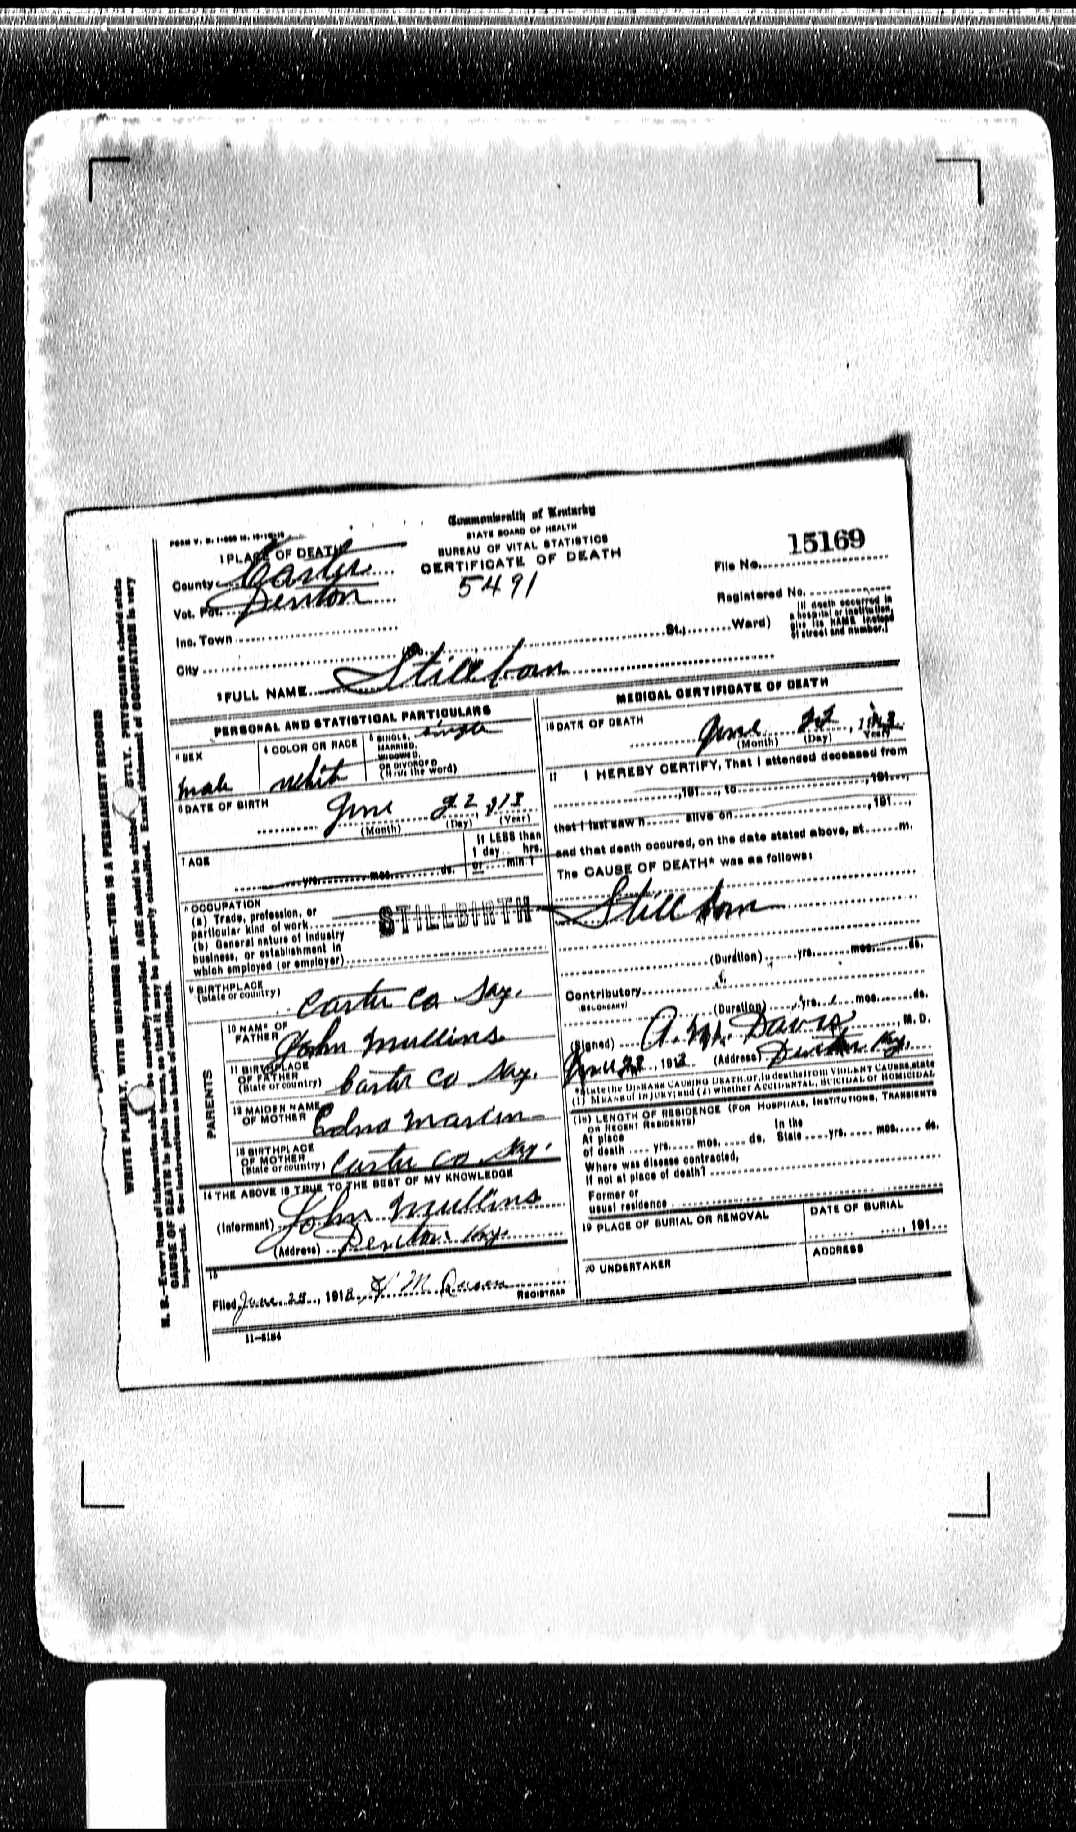 Commonwealth of Kentucky
STATE BOARD OF HEALTH
BUREAU OF VITAL STATISTICS
CERTIFICATE OF DEATH
5491
1 PLACE OF DEATH
County Carter
Vot. Pct. Denton
Inc. Town
City
File No. 15169
Registered No.
[If death occurred in
a hospital or institution,
give its NAME instead
of street and number.]
St.; Ward)
2 FULL NAME Stillborn
PERSONAL AND STATISTICAL PARTICULARS
3 SEX
male
4 COLOR OR RACE
white
5 SINGLE, single
MARRIED,
WIDOWED,
OR DIVORCED
(Write the word)
6 DATE OF BIRTH
June 22, 913
(Month) (Day) (Year)
7 AGE
yrs. mos. ds.
If LESS than
1 day.. hrs.
or.... min ?
8 OCCUPATION
(a) Trade, profession, or
particular kind of work
(b) General nature of industry
business, or establishment in
which employed (or employer)
STILLBIRTH
9 BIRTHPLACE
(State or country) Carter Co Ky.
PARENTS
10 NAME OF
FATHER John Mullins
11 BIRTHPLACE
OF FATHER
(State or country) Carter Co Ky.
12 MAIDEN NAME
OF MOTHER Edna
13 BIRTHPLACE
OF MOTHER
(State or country) Carter Co Ky.
14 THE ABOVE IS TRUE TO THE BEST OF MY KNOWLEDGE
(Informant) John Mullins
(Address) Denton Ky.
15
Filed June 28, 191 M
REGISTRAR
11-5184
MEDICAL CERTIFICATE OF DEATH
16 DATE OF DEATH
June 22, 1913
(Month) (Day) (Year)
17 I HEREBY CERTIFY, That I attended deceased from
, 191..., to , 191...,
that I last saw h alive on , 191...,
and that death occured, on the date stated above, at m.
The CAUSE OF DEATH* was as follows:
Stillborn
(Duration) yrs. mos. ds.
Contributory
(SECONDARY)
(Duration) yrs. mos. ds.
(Signed) A. M. Davis M. D.
191 (Address) Denton Ky.
*State the DISEASE CAUSING DEATH, or, in deaths from VIOLENT CAUSES, state
(1) MEANS OF INJURY; and (2) whether ACCIDENTAL, SUICIDAL or HOMICIDAL
(18) LENGTH OF RESIDENCE (FOR HOSPITALS, INSTITUTIONS, TRANSIENTS
OR RECENT RESIDENTS)
At place In the
of death yrs. mos. ds. State yrs. mos. ds.
Where was disease contracted,
if not at place of death?
Former or
usual residence
19 PLACE OF BURIAL OR REMOVAL
DATE OF BURIAL
, 191
20 UNDERTAKER
ADDRESS
WRITE PLAINLY, WITH UNFADING INK—THIS IS A PERMANENT RECORD
N. B.—Every item of information should be carefully supplied. AGE should be stated EXACTLY. PHYSICIANS should state
CAUSE OF DEATH in plain terms, so that it may be properly classified. Exact statement of OCCUPATION is very
important. See instructions on back of certificate.